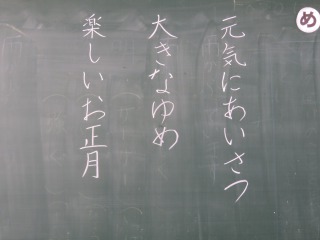 め
元気にあいさつ
大きなゆめ
楽しいお正月